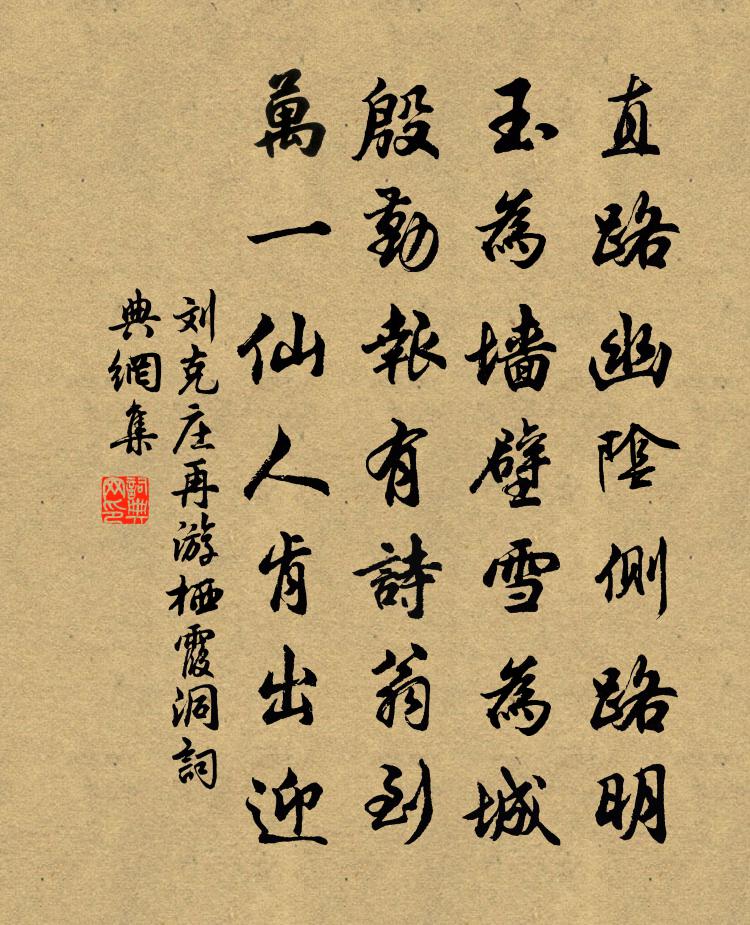 直路幽陰側路明
玉為墙壁雪為城
殷勤報有詩翁到
萬一仙人肯出迎
刘克庄再游栖霞洞詞
典網集
詞典网印